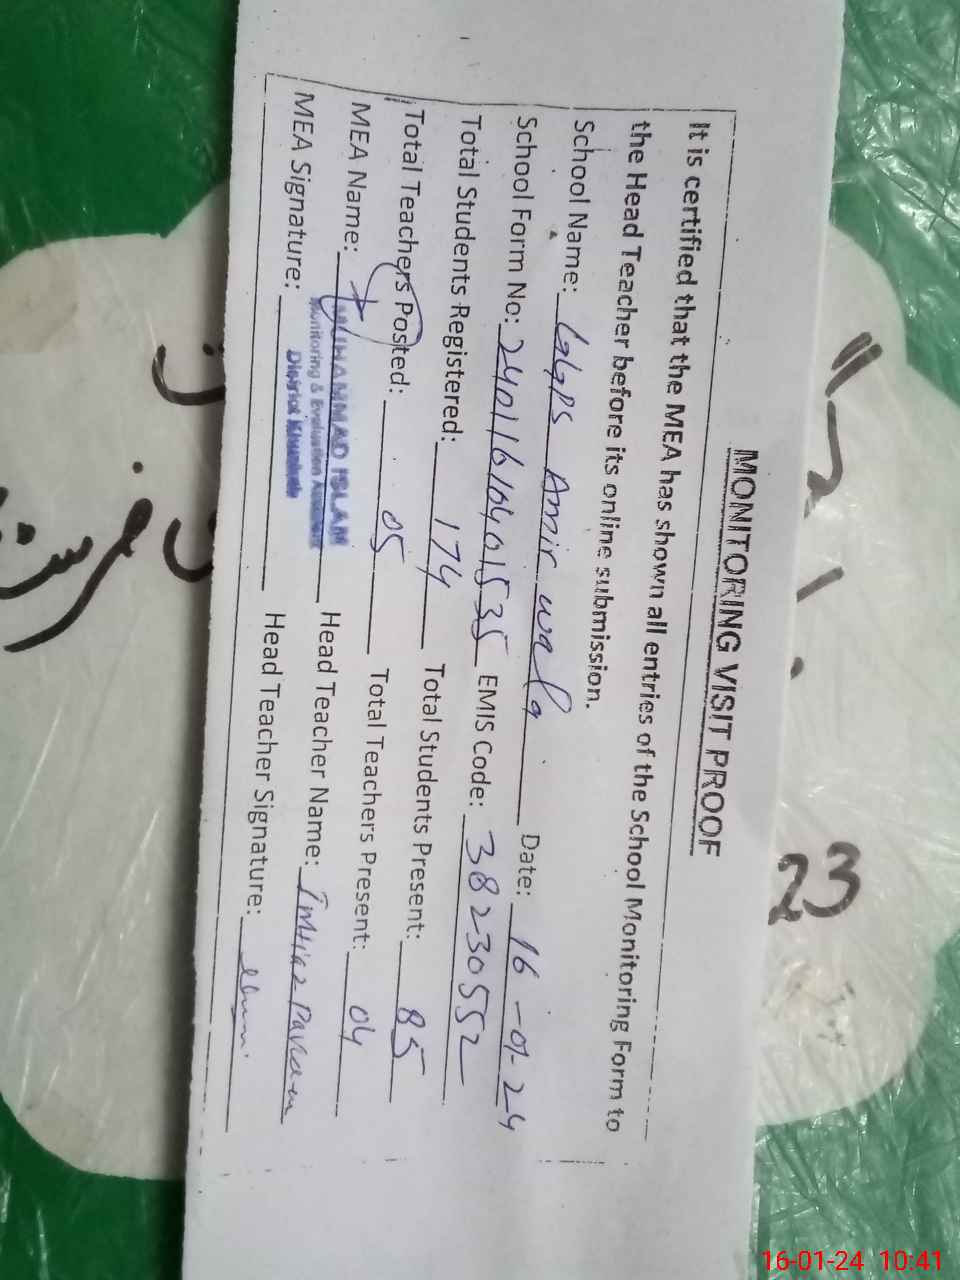 MONITORING VISIT PROOF
It is certified that the MEA has shown all entries of the School Monitoring Form to
the Head Teacher before its online submission.
School Name: GGPS Amir wala Date: 16-01-24
School Form No: 24011610401535 EMIS Code: 38230552
Total Students Registered: 174 Total Students Present: 85
Total Teachers Posted: 05 Total Teachers Present: 04
MEA Name: MUHAMMAD ISLAM Head Teacher Name: Imtiaz Parveen
Monitoring & Evaluation Assistant
District Khushab
MEA Signature: Head Teacher Signature:
23
16-01-24 10:41